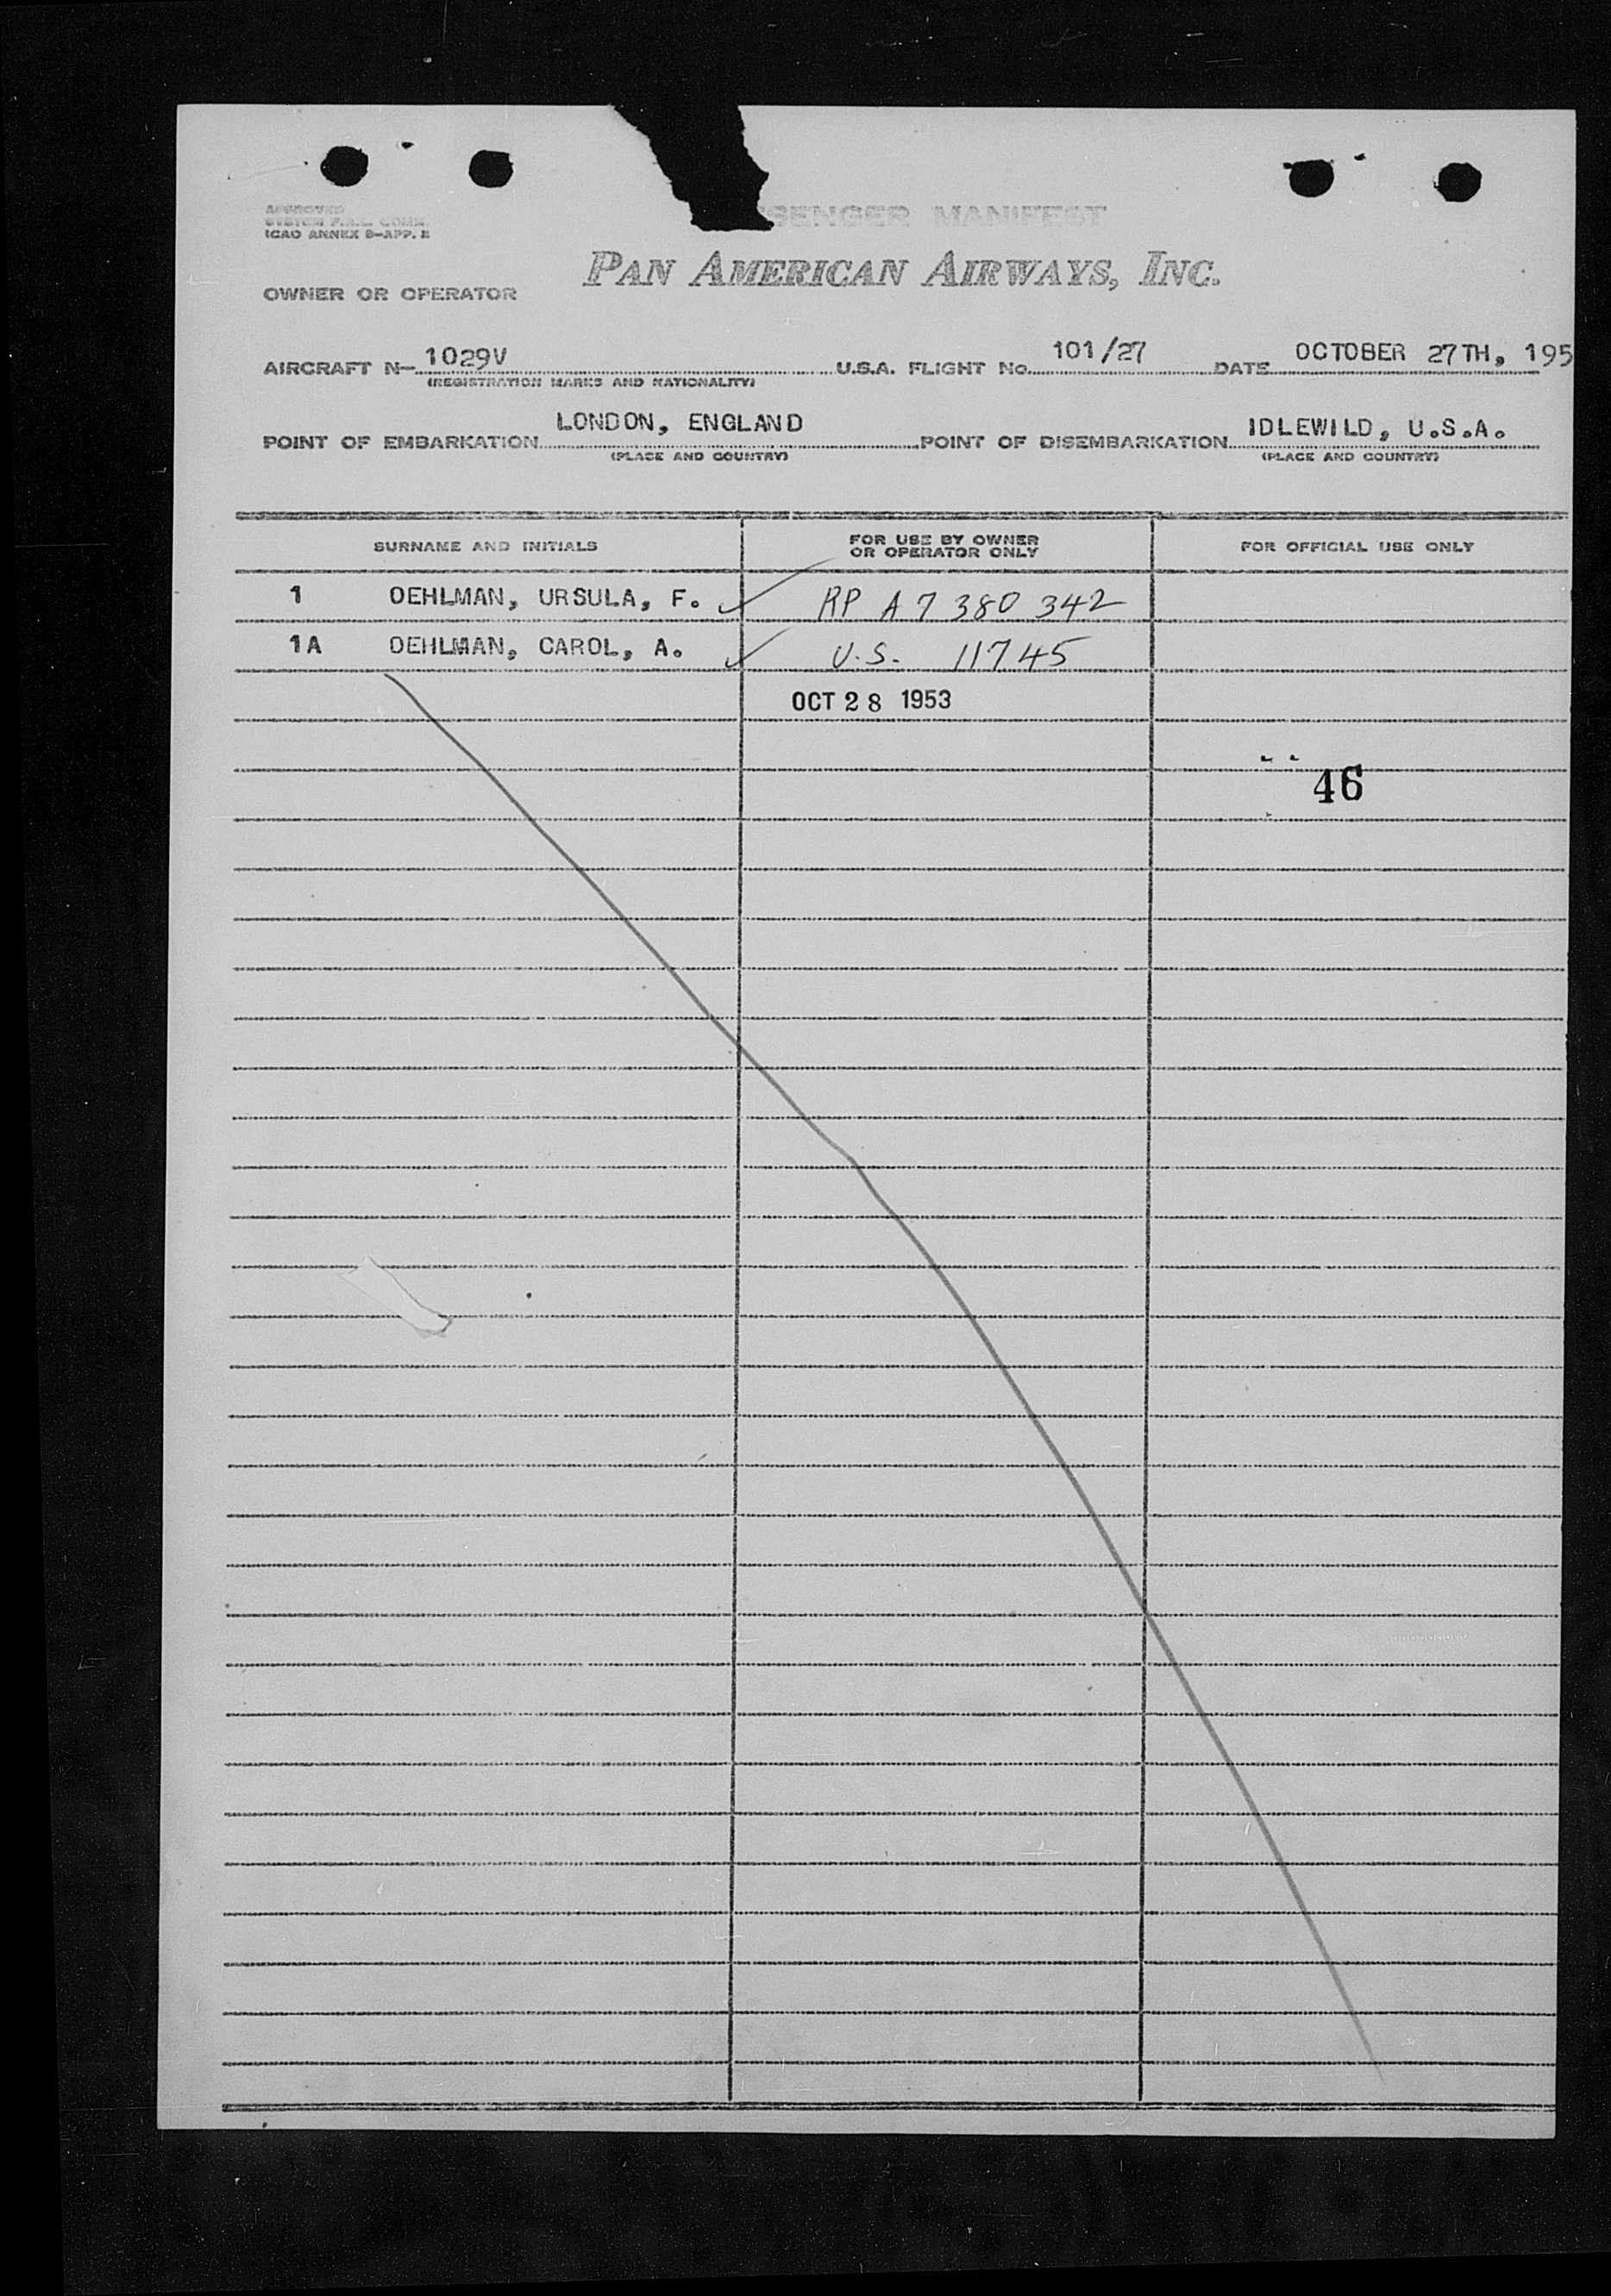 APPROVED
SYSTEM F.A.L. COMM.
ICAO ANNEX 9-APP. E
SENGER MANIFEST
PAN AMERICAN AIRWAYS, INC.
OWNER OR OPERATOR
AIRCRAFT N- 1029V U.S.A. FLIGHT No. 101/27 DATE OCTOBER 27TH, 195
(REGISTRATION MARKS AND NATIONALITY)
POINT OF EMBARKATION LONDON, ENGLAND POINT OF DISEMBARKATION IDLEWILD, U.S.A.
(PLACE AND COUNTRY) (PLACE AND COUNTRY)
SURNAME AND INITIALS FOR USE BY OWNER OR OPERATOR ONLY FOR OFFICIAL USE ONLY
1 OEHLMAN, URSULA, F. RP A7 380 342
1A OEHLMAN, CAROL, A. U.S. 11745
OCT 28 1953
46